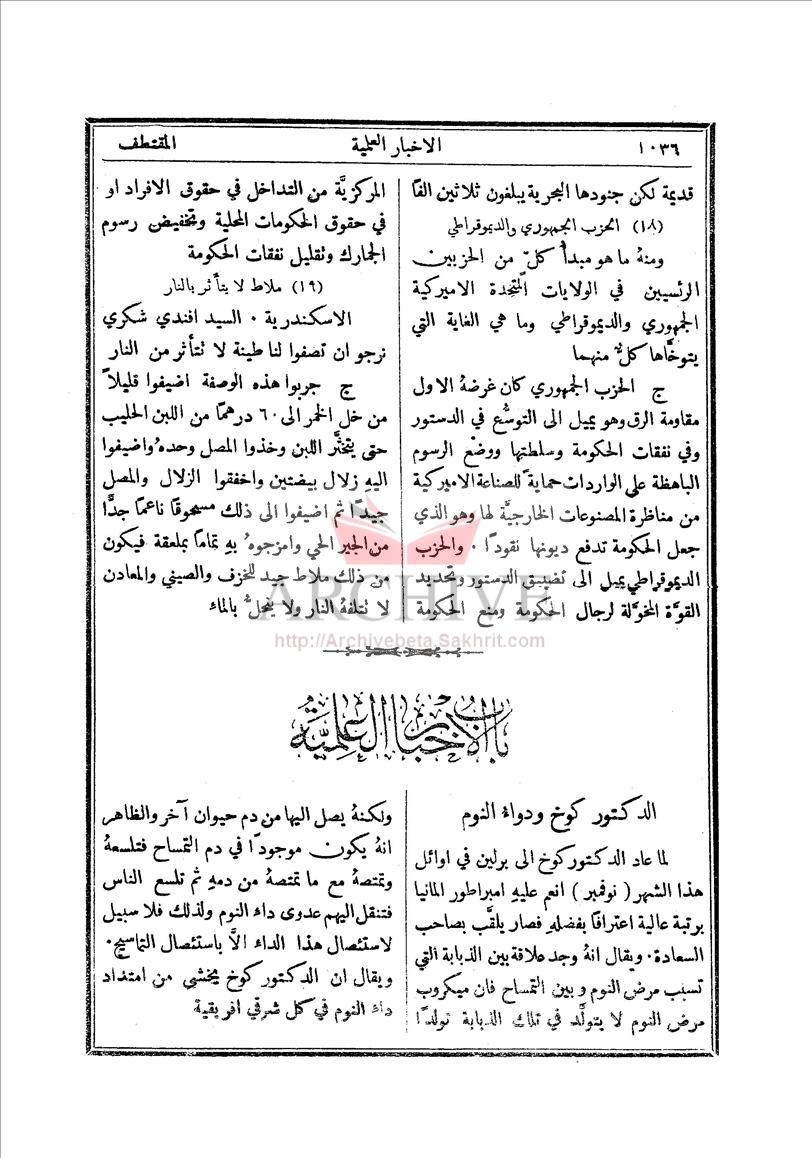 ١٠٣٦ الاخبار العلمية المقتطف
قديمة لكن جنودها البحرية يبلغون ثلاثين الفًا
(١٨) الحزب الجمهوري والديموقراطي
ومنهُ ما هو مبدأ كلّ من الحزبين
الرئسيين في الولايات المتحدة الاميركية
الجمهوري والديموقراطي وما هي الغاية التي
يتوخَّاها كلٌّ منهما
ج الحزب الجمهوري كان غرضهُ الاول
مقاومة الرق وهو يميل الى التوسُّع في الدستور
وفي نفقات الحكومة وسلطتها ووضع الرسوم
الباهظة على الواردات حمايةً للصناعة الاميركية
من مناظرة المصنوعات الخارجيَّة لها وهو الذي
جعل الحكومة تدفع ديونها نقودًا ٠ والحزب
الديموقراطي يميل الى تضييق الدستور وتحديد
القوَّة المخوَّلة لرجال الحكومة ومنع الحكومة
المركزيَّة من التداخل في حقوق الافراد او
في حقوق الحكومات المحلية وتخفيض رسوم
الجمارك وتقليل نفقات الحكومة
(١٩) ملاط لا يتأثر بالنار
الاسكندرية ٠ السيد افندي شكري
نرجو ان تصفوا لنا طينة لا تتأثر من النار
ج جربوا هذه الوصفة اضيفوا قليلاً
من خل الخمر الى ٦٠ درهمًا من اللبن الحليب
حتى يتخثَّر اللبن وخذوا المصل وحدهُ واضيفوا
اليهِ زلال بيضتين واخفقوا الزلال والمصل
جيدًا ثم اضيفوا الى ذلك مسحوقًا ناعمًا جدًّا
من الجير الحي وامزجوهُ بهِ تمامًا بملعقة فيكون
من ذلك ملاط جيد للخزف والصيني والمعادن
لا تتلفهُ النار ولا ينحلُّ بالماء
ARCHIVE
http://Archivebeta.Sakhrit.com
باب الاخبار العلميَّة
الدكتور كوخ ودواء النوم
لما عاد الدكتور كوخ الى برلين في اوائل
هذا الشهر (نوفمبر) انعم عليهِ امبراطور المانيا
برتبة عالية اعترافًا بفضلهِ فصار يلقَّب بصاحب
السعادة ٠ ويقال انهُ وجد علاقة بين الذبابة التي
تسبب مرض النوم وبين التمساح فان ميكروب
مرض النوم لا يتولَّد في تلك الذبابة تولدًا
ولكنهُ يصل اليها من دم حيوان آخر والظاهر
انهُ يكون موجودًا في دم التمساح فتلسعهُ
وتمتصهُ مع ما تمتصهُ من دمهِ ثم تلسع الناس
فتنقل اليهم عدوى داء النوم ولذلك فلا سبيل
لاستئصال هذا الداء الاَّ باستئصال التماسيح ٠
ويقال ان الدكتور كوخ يخشى من امتداد
داء النوم في كل شرقي افريقية